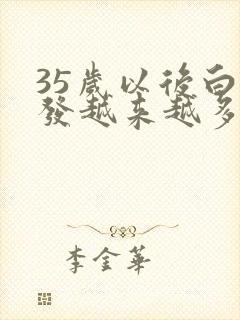 35歲以後白
發越来越多
李金華